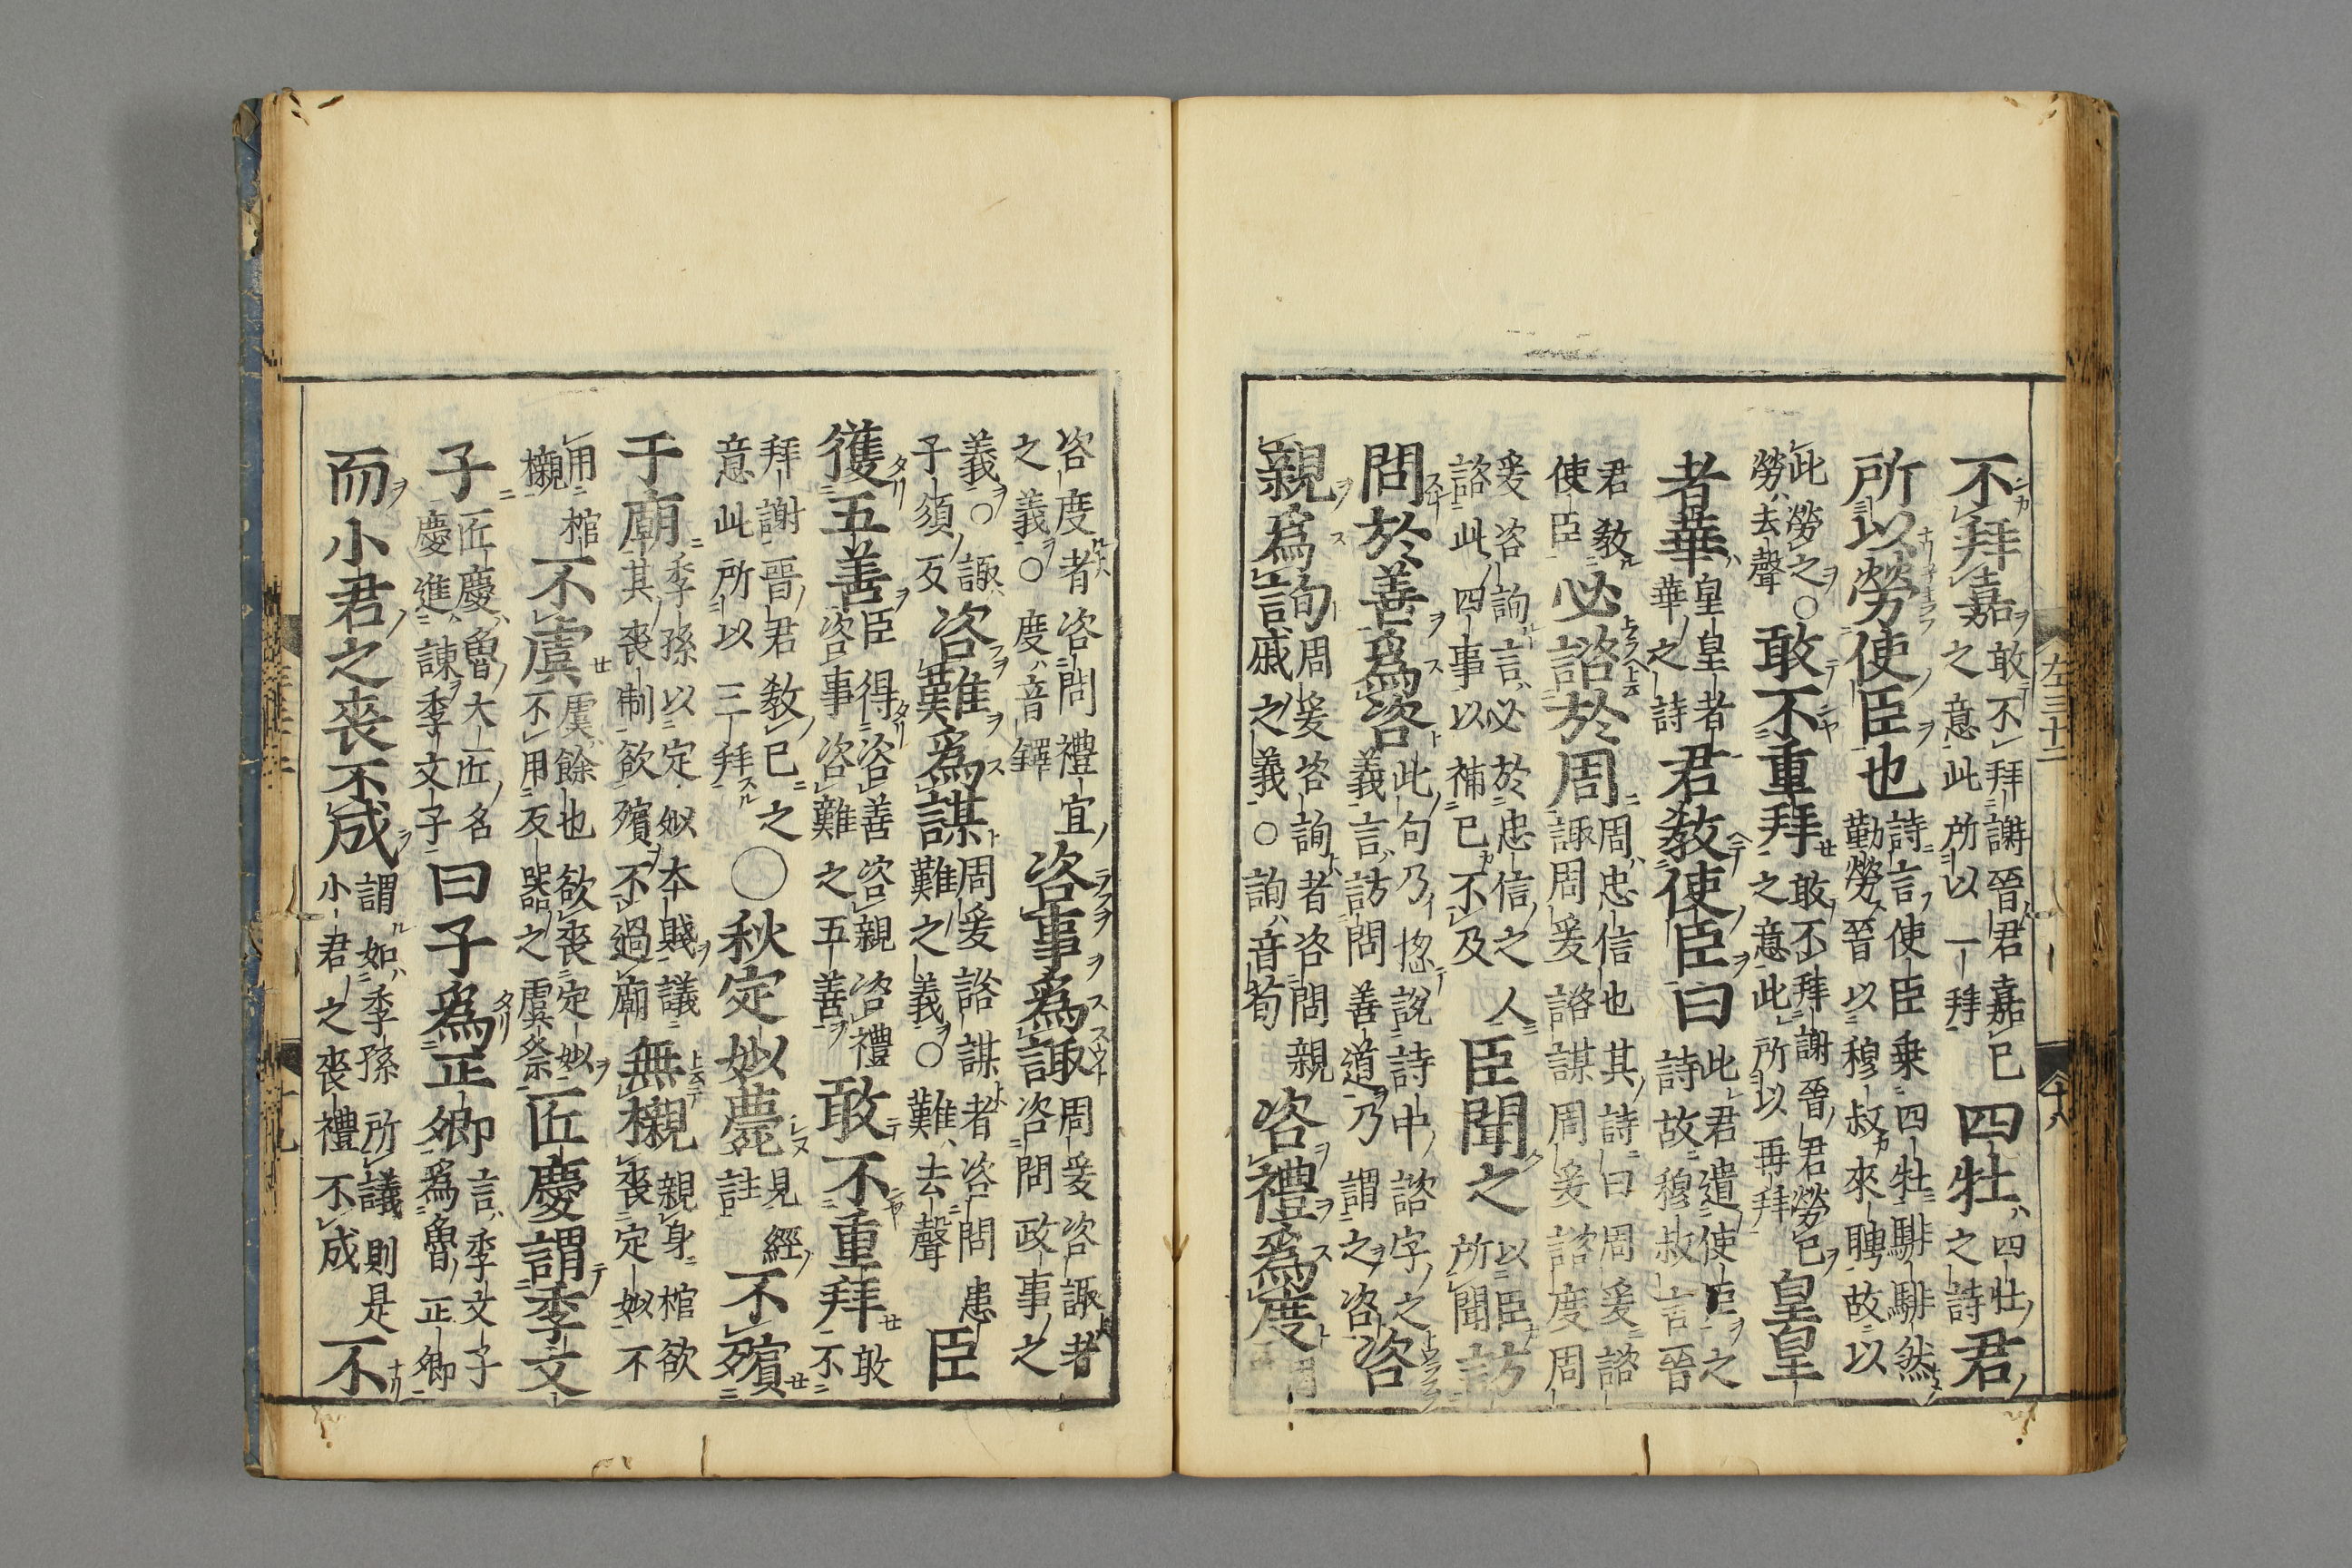 左三十二
十八
不拜嘉敢不拜謝晉君嘉已之意此所以一拜四牡四牡之詩君
所以勞使臣也詩言使臣乗四牡騑騑然勤勞晉以穆叔來聘故以
此勞之○勞去聲敢不重拜敢不拜謝晉君勞已之意此所以再拜皇皇
者華皇皇者華之詩君教使臣曰此君遣使臣之詩故穆叔言晉
君教使臣必諮於周周忠信也其詩曰周爰諮諏周爰諮謀周爰諮度周
爰咨詢言必於忠信之人諮此四事以補已不及臣聞之以臣所聞訪
問於善爲咨此句乃揔說詩中諮字之義言訪問善道乃謂之咨咨
親爲詢周爰咨詢者咨問親戚之義○詢音荀咨禮爲度
咨度者咨問禮宜之義○度音鐸咨事爲諏周爰咨諏者咨問政事之
義○諏子須反咨難爲謀周爰諮謀者咨問患難之義○難去聲臣
獲五善臣得咨善咨親咨禮咨事咨難之五善敢不重拜敢不
拜謝晉君教已之意此所以三拜○秋定姒薨見經註不殯
于廟季孫以定姒本賤議其喪制欲殯不過廟無櫬親身棺欲喪定姒不
用棺櫬不虞虞餘也欲喪定姒不用反哭之虞祭匠慶謂季文
子匠慶魯大匠名慶進諫季文子曰子爲正卿言季文子爲魯正卿
而小君之喪不成謂如季孫所議則是小君之喪禮不成不